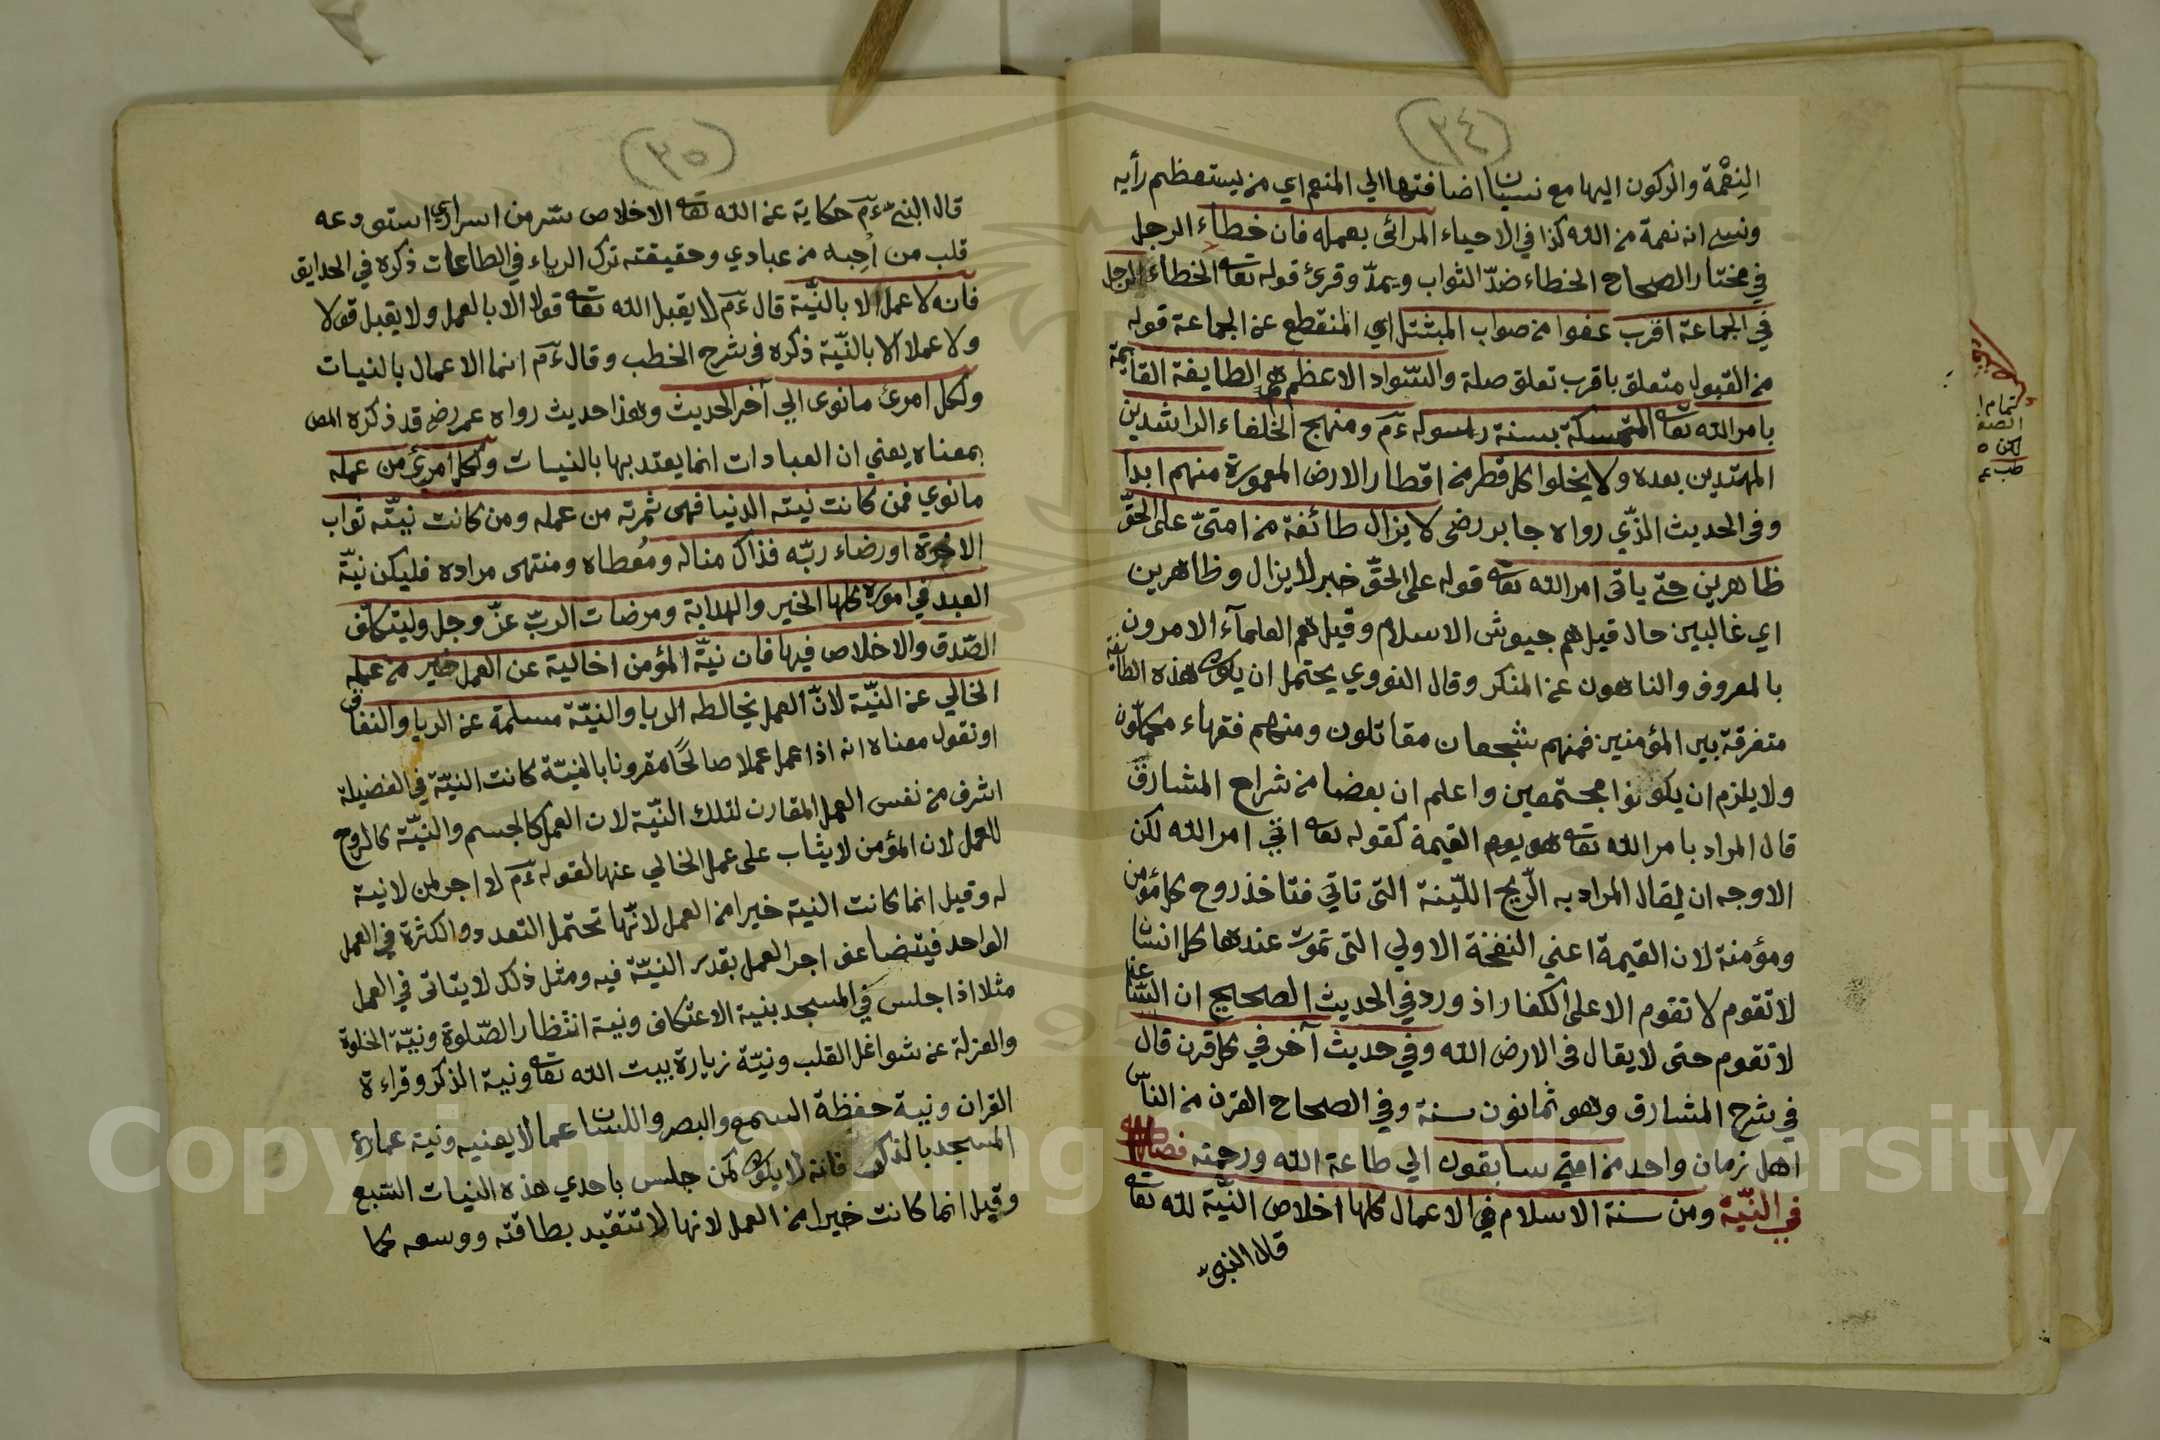 (٣٤)
النِعْمة والركون اليها مع نسيان اضافتها الي المنعم اي من يستعظم رأيه
ونسي انه نعمة من الله كذا في الاحياء المرائى بعمله فان خطاء الرجل
في مختار الصحاح الخطاء ضدّ الثواب ويمدّ وقرئ قوله تعا الخطاء الرجل
في الجماعة اقرب عفوا من صواب المبتتل اي المنقطع عن الجماعة قوله
من القبول متعلق باقرب تعلق صلة والسّواد الاعظم هو الطايفة القائمة
بامر الله تعا المتمسكة بسنة رسوله ءم ومنهج الخلفاء الراشدين
المهتدين بعده ولا يخلوا كل قطر من اقطار الارض المعمورة منهم ابدا
وفى الحديث الذّي رواه جابر رضى لا يزال طائفة من امتيّ على الحقّ
ظاهرين حتّے ياتى امر الله تعا قوله على الحقّ خبر لا يزال وظاهرين
اي غالبين حال قيل هم جيوش الاسلام وقيل هم العلمآء الامرون
بالمعروف والناهون عن المنكر وقال النووي يحتمل ان يكون هذه الطائفة
متفرقة بين المؤمنين فمنهم شجعان مقاتلون ومنهم فقهاء
ولا يلزم ان يكونوا مجتمعين واعلم ان بعضا من شراح المشارق
قال المراد بامر الله تعا هو يوم القيمة كقوله تعا اتى امر الله لكن
الاوجه ان يقال المراد به الرّيح الليّنة التى تاتي فتاخذ روح كل مؤمن
ومؤمنة لان القيمة اعني النفخة الاولي التى تموت عندها كل انسان
لا تقوم لا تقوم الا على الكفار اذ ورد في الحديث الصحيح ان الساعة
لا تقوم حتى لا يقال فى الارض الله وفي حديث آخر في كل قرن قال
في شرح المشارق وهو ثمانون سنة وفي الصحاح القرن من الناس
اهل زمان واحد من امتے سابقون الي طاعة الله ورحمته فصل
في النيّة ومن سنة الاسلام في الاعمال كلها اخلاص النيّة لله تعا
قال النبىّ
(٣٥)
قال النبىّ ءم حكاية عن الله تعا الاخلاص سرّ من اسراري استودعه
قلب من اُحِبه من عبادي وحقيقته ترك الرياء في الطاعات ذكره في الحدايق
فانه لا عمل الا بالنيّة قال ءم لا يقبل الله تعا قولا الا بالعمل ولا يقبل قولا
ولا عملا الا بالنيّة ذكره فى شرح الخطب وقال ءم انما الاعمال بالنيات
ولكل امرئ ما نوى الي آخر الحديث وهذا حديث رواه عمر رضى قد ذكره المص
بمعناه يعني ان العبادات انما يعتد بها بالنيات ولكل امرئ من عمله
ما نوي فمن كانت نيته الدنيا فهى ثمرته من عمله ومن كانت نيّته ثواب
الاخرة او رضاء ربّه فذاك مناله ومُعطاه ومنتهى مراده فليكن نيّة
العبد في اموره كلها الخير والهداية ومرضات الربّ عزّ وجل وليتكلّف
الصّدق والاخلاص فيها فان نيّة المؤمن اخالية عن العمل خير من عمله
الخالي عن النيّة لانّ العمل يخالطه الريا والنيّة مسلمة عن الريا والنفاق
او نقول معناه انه اذا عمل عملا صالحًا مقرونا بالنيّة كانت النيّة في الفضيلة
اشرف من نفس العمل المقارن لتلك النيّة لان العمل كالجسم والنيّة كالروح
للعمل لان المؤمن لا يثاب على عمل الخالي عنها لقوله ءم لا اجر لمن لا نية
له وقيل انما كانت النية خيرا من العمل لانّها تحتمل التعدد والكثرة في العمل
الواحد فيتضاعف اجر العمل بقدر النيّة فيه ومثل ذلك لا يتاتى في العمل
مثلا اذا جلس في المسجد بنية الاعتكاف ونية انتظار الصّلوة ونيّة الخلوة
والعزلة عن شواغل القلب ونيّة زيارة بيت الله تعا ونية الذكر وقراءة
القران ونية حفظة السمع والبصر واللسان عما لا يعنيه ونية عمارة
المسجد بالذكر فانه لا يكون كمن جلس باحدي هذه النيات السّبع
وقيل انما كانت خيرا من العمل لانها لا تتقيد بطاقته ووسعه كما
Copyright © King Saud University